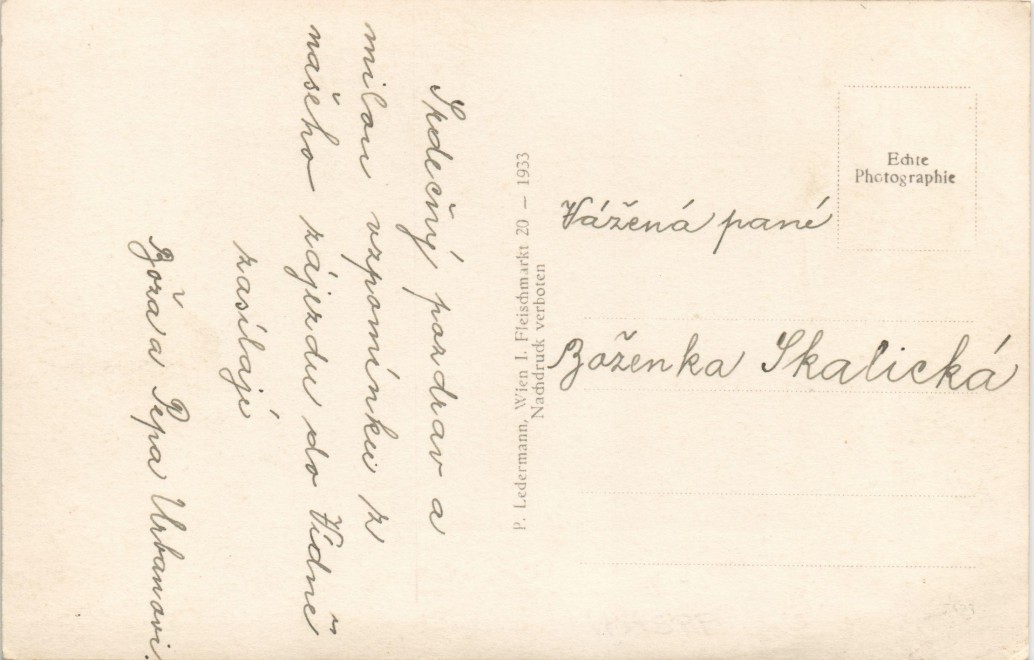 Srdečný pozdrav a
milou vzpomínku z
našeho zájezdu do Vídně
zasílají
Boža a Pepa Urbanovi.
P. Ledermann, Wien I. Fleischmarkt 20 – 1933
Nachdruck verboten
Echte
Photographie
Vážená pané
Boženka Skalická